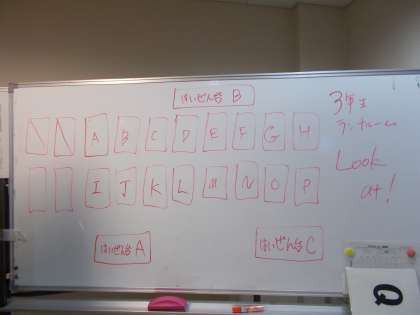 はいぜん台 B
3年生
ランチルーム
Look
at!
A B C D E F G H
I J K L M N O P
はいぜん台 A
はいぜん台 C
Q